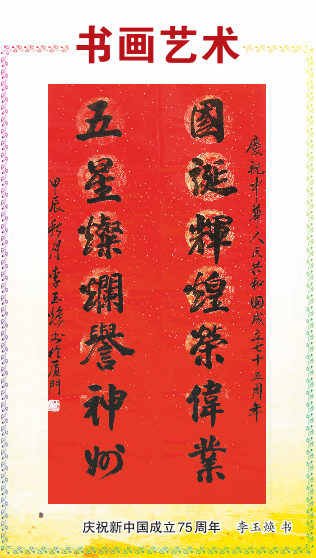 书画艺术
慶祝中華人民共和國成立七十五周年
國誕輝煌榮偉業
五星燦爛譽神州
甲辰秋月李玉焕书於厦門
庆祝新中国成立75周年 李玉焕 书